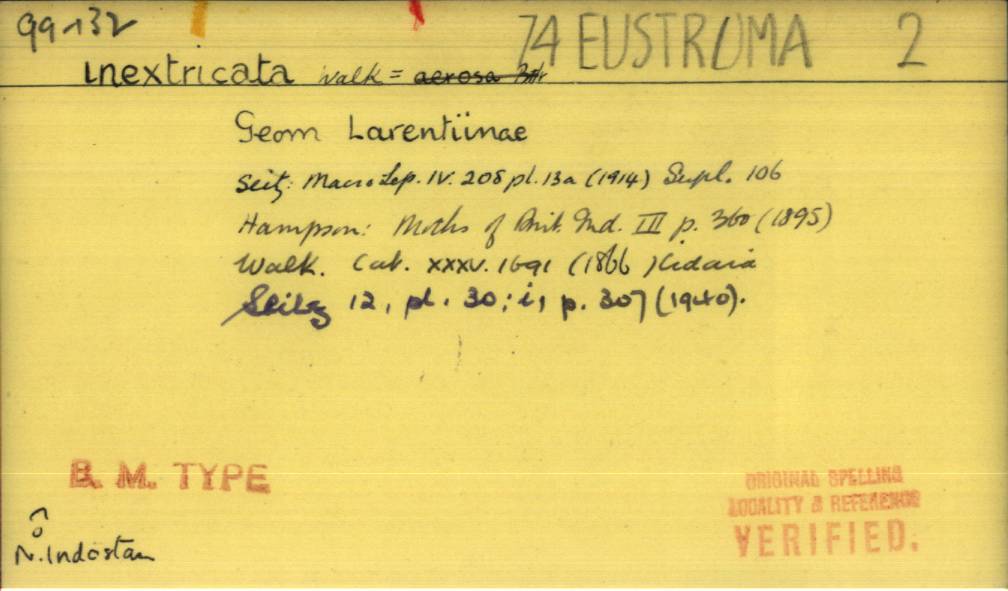 99-132
74 EUSTROMA 2
inextricata Walk = aerosa Btlr
Geom Larentiinae
Seitz: Macro Lep. IV. 208 pl. 13a (1914) Supl. 106
Hampson: Moths of Brit. Ind. III p. 360 (1895)
Walk. Cat. XXXV. 1691 (1866) Cidaria
Seitz 12, pl. 30: i, p. 307 (1940).
B. M. TYPE
ORIGINAL SPELLING
LOCALITY & REFERENCE
VERIFIED.
N. Indostan